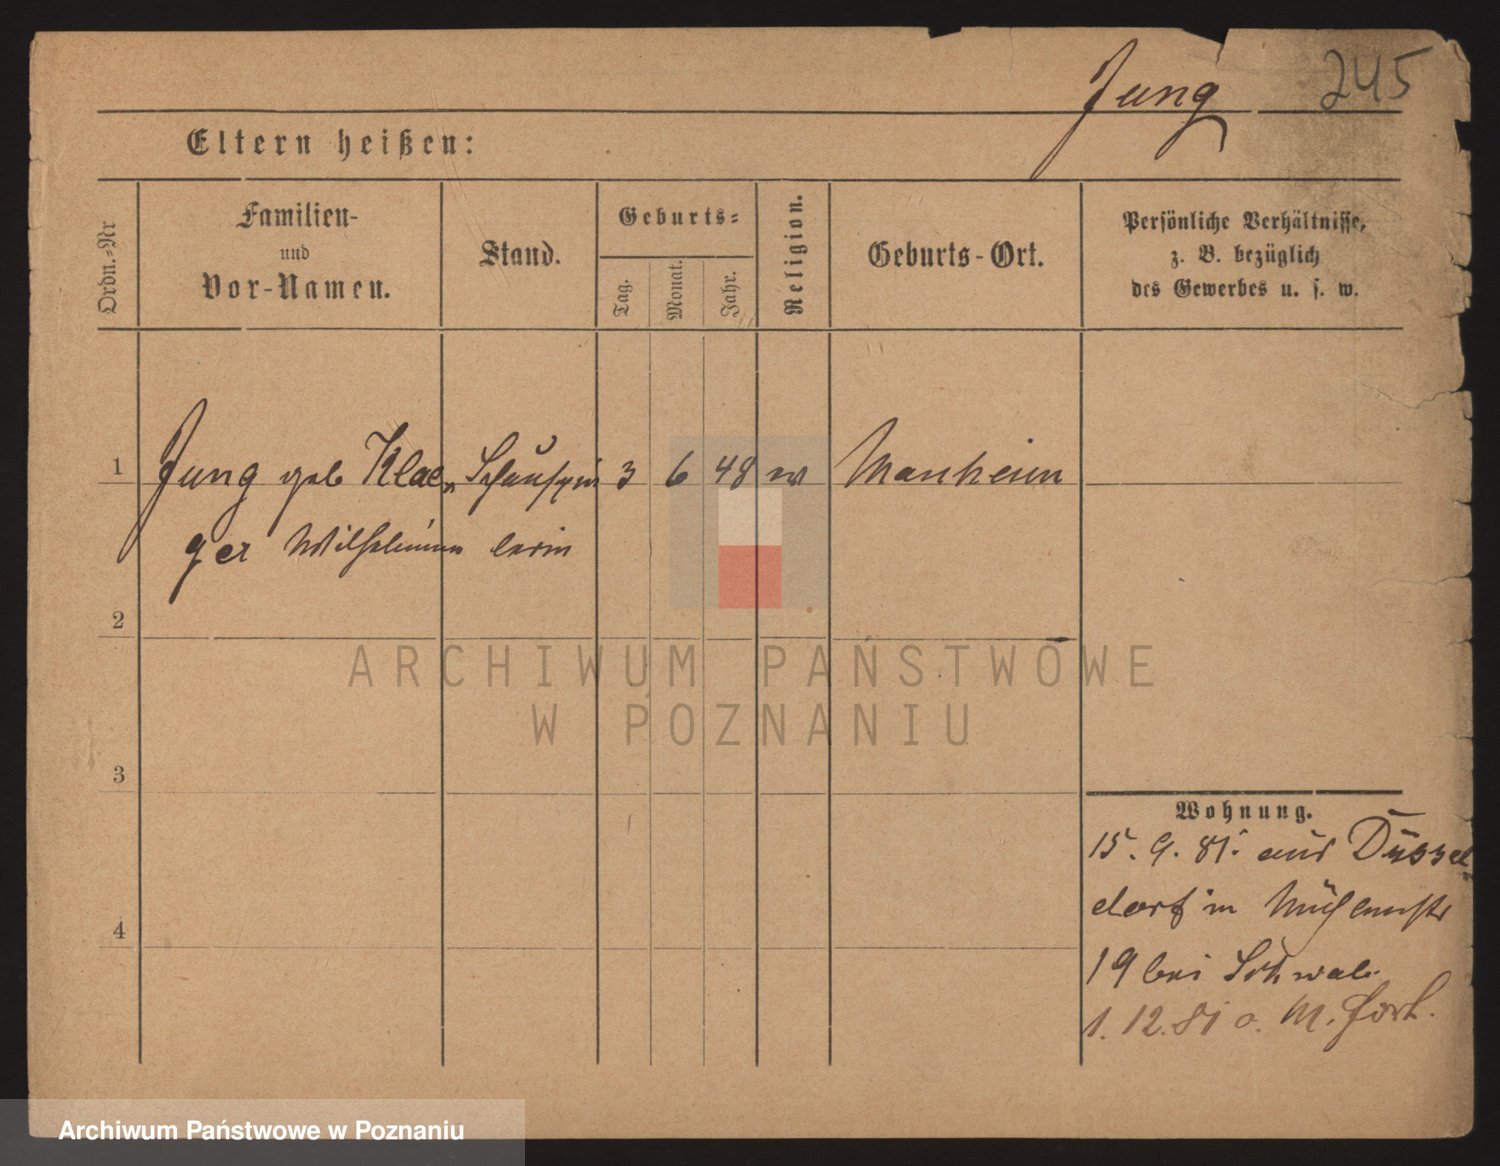 Jung 245
Eltern heißen:
Ordn.-Nr
Familien-
und
Vor-Namen.
Stand.
Geburts-
Tag.
Monat.
Jahr.
Religion.
Geburts-Ort.
Persönliche Verhältnisse,
z. B. bezüglich
des Gewerbes u. s. w.
1 Jung geb Klae- Schauspie 3 6 48 Manheim
ger Wilhelmine lerin
2
3
4
ARCHIWUM PAŃSTWOWE
W POZNANIU
Wohnung.
15. 9. 81. aus Düssel
dorf in Mühlenstr
19 bei Schwab
1. 12. 81 o. M. fort.
Archiwum Państwowe w Poznaniu